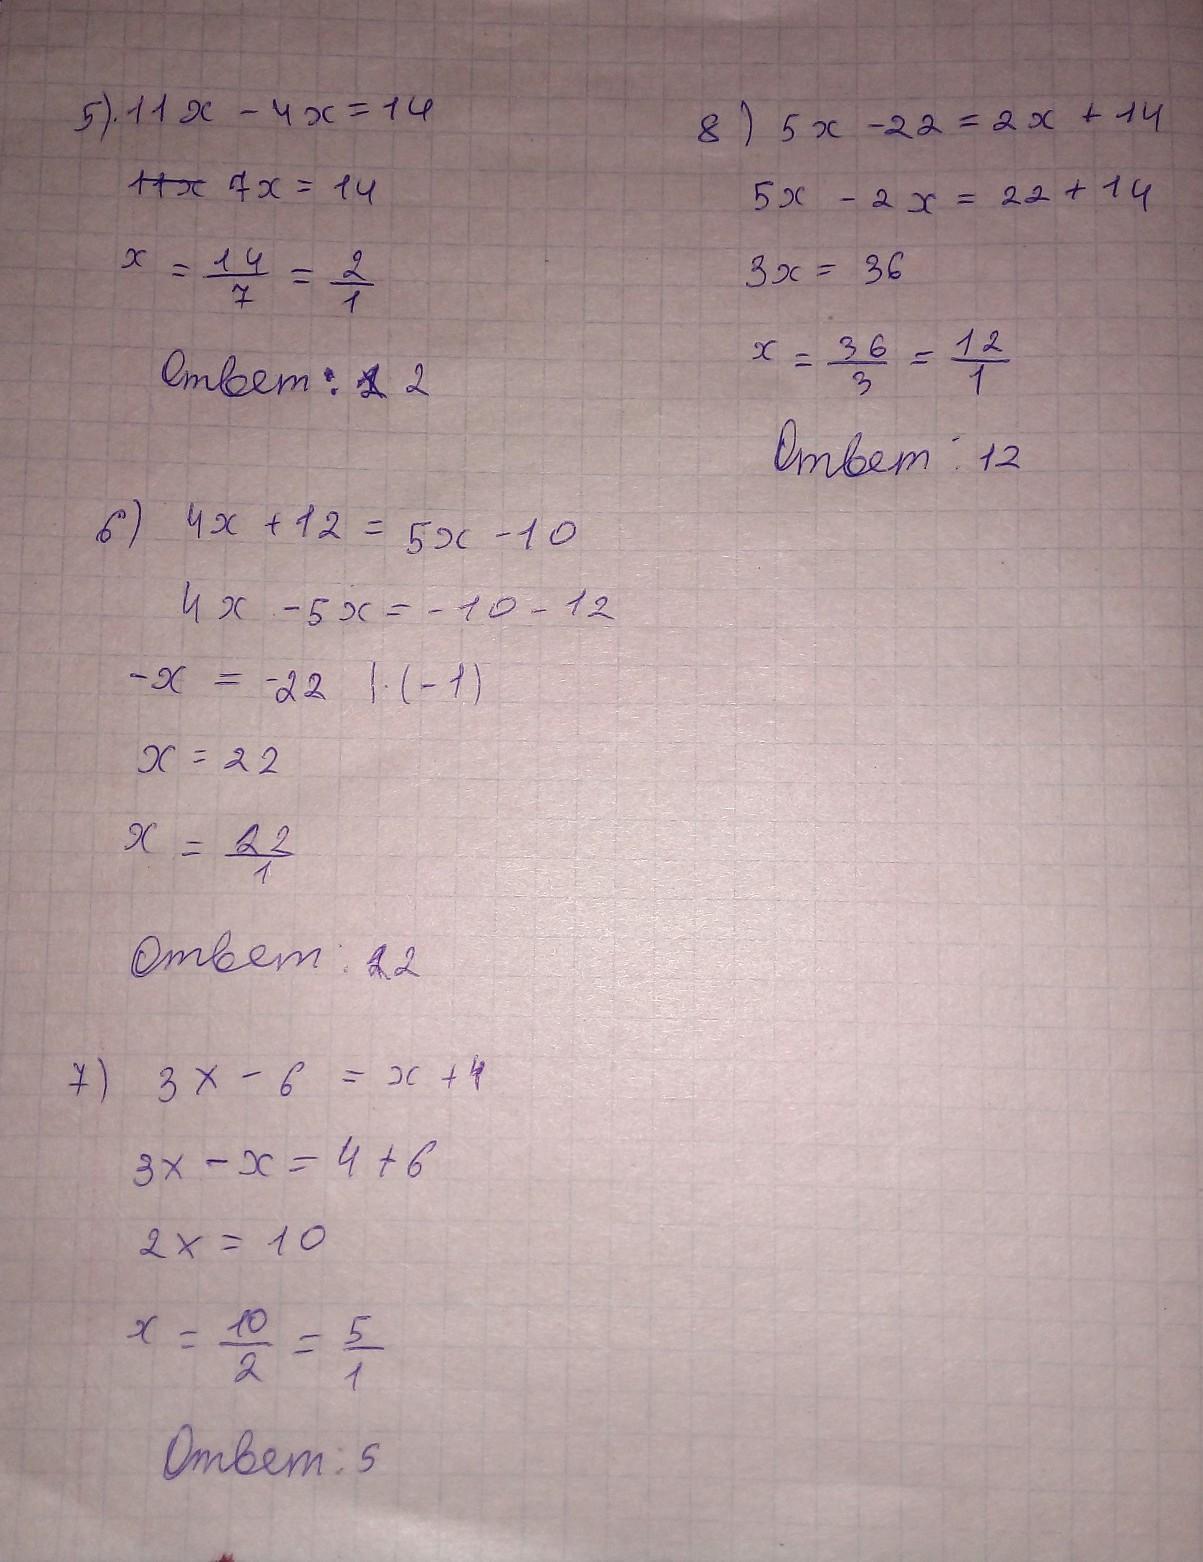 5) 11x - 4x = 14
11x 7x = 14
x = 14/7 = 2/1
Ответ: 2
6) 4x + 12 = 5x - 10
4x - 5x = -10 - 12
-x = -22 |·(-1)
x = 22
x = 22/1
Ответ: 22
7) 3x - 6 = x + 4
3x - x = 4 + 6
2x = 10
x = 10/2 = 5/1
Ответ: 5
8) 5x - 22 = 2x + 14
5x - 2x = 22 + 14
3x = 36
x = 36/3 = 12/1
Ответ: 12